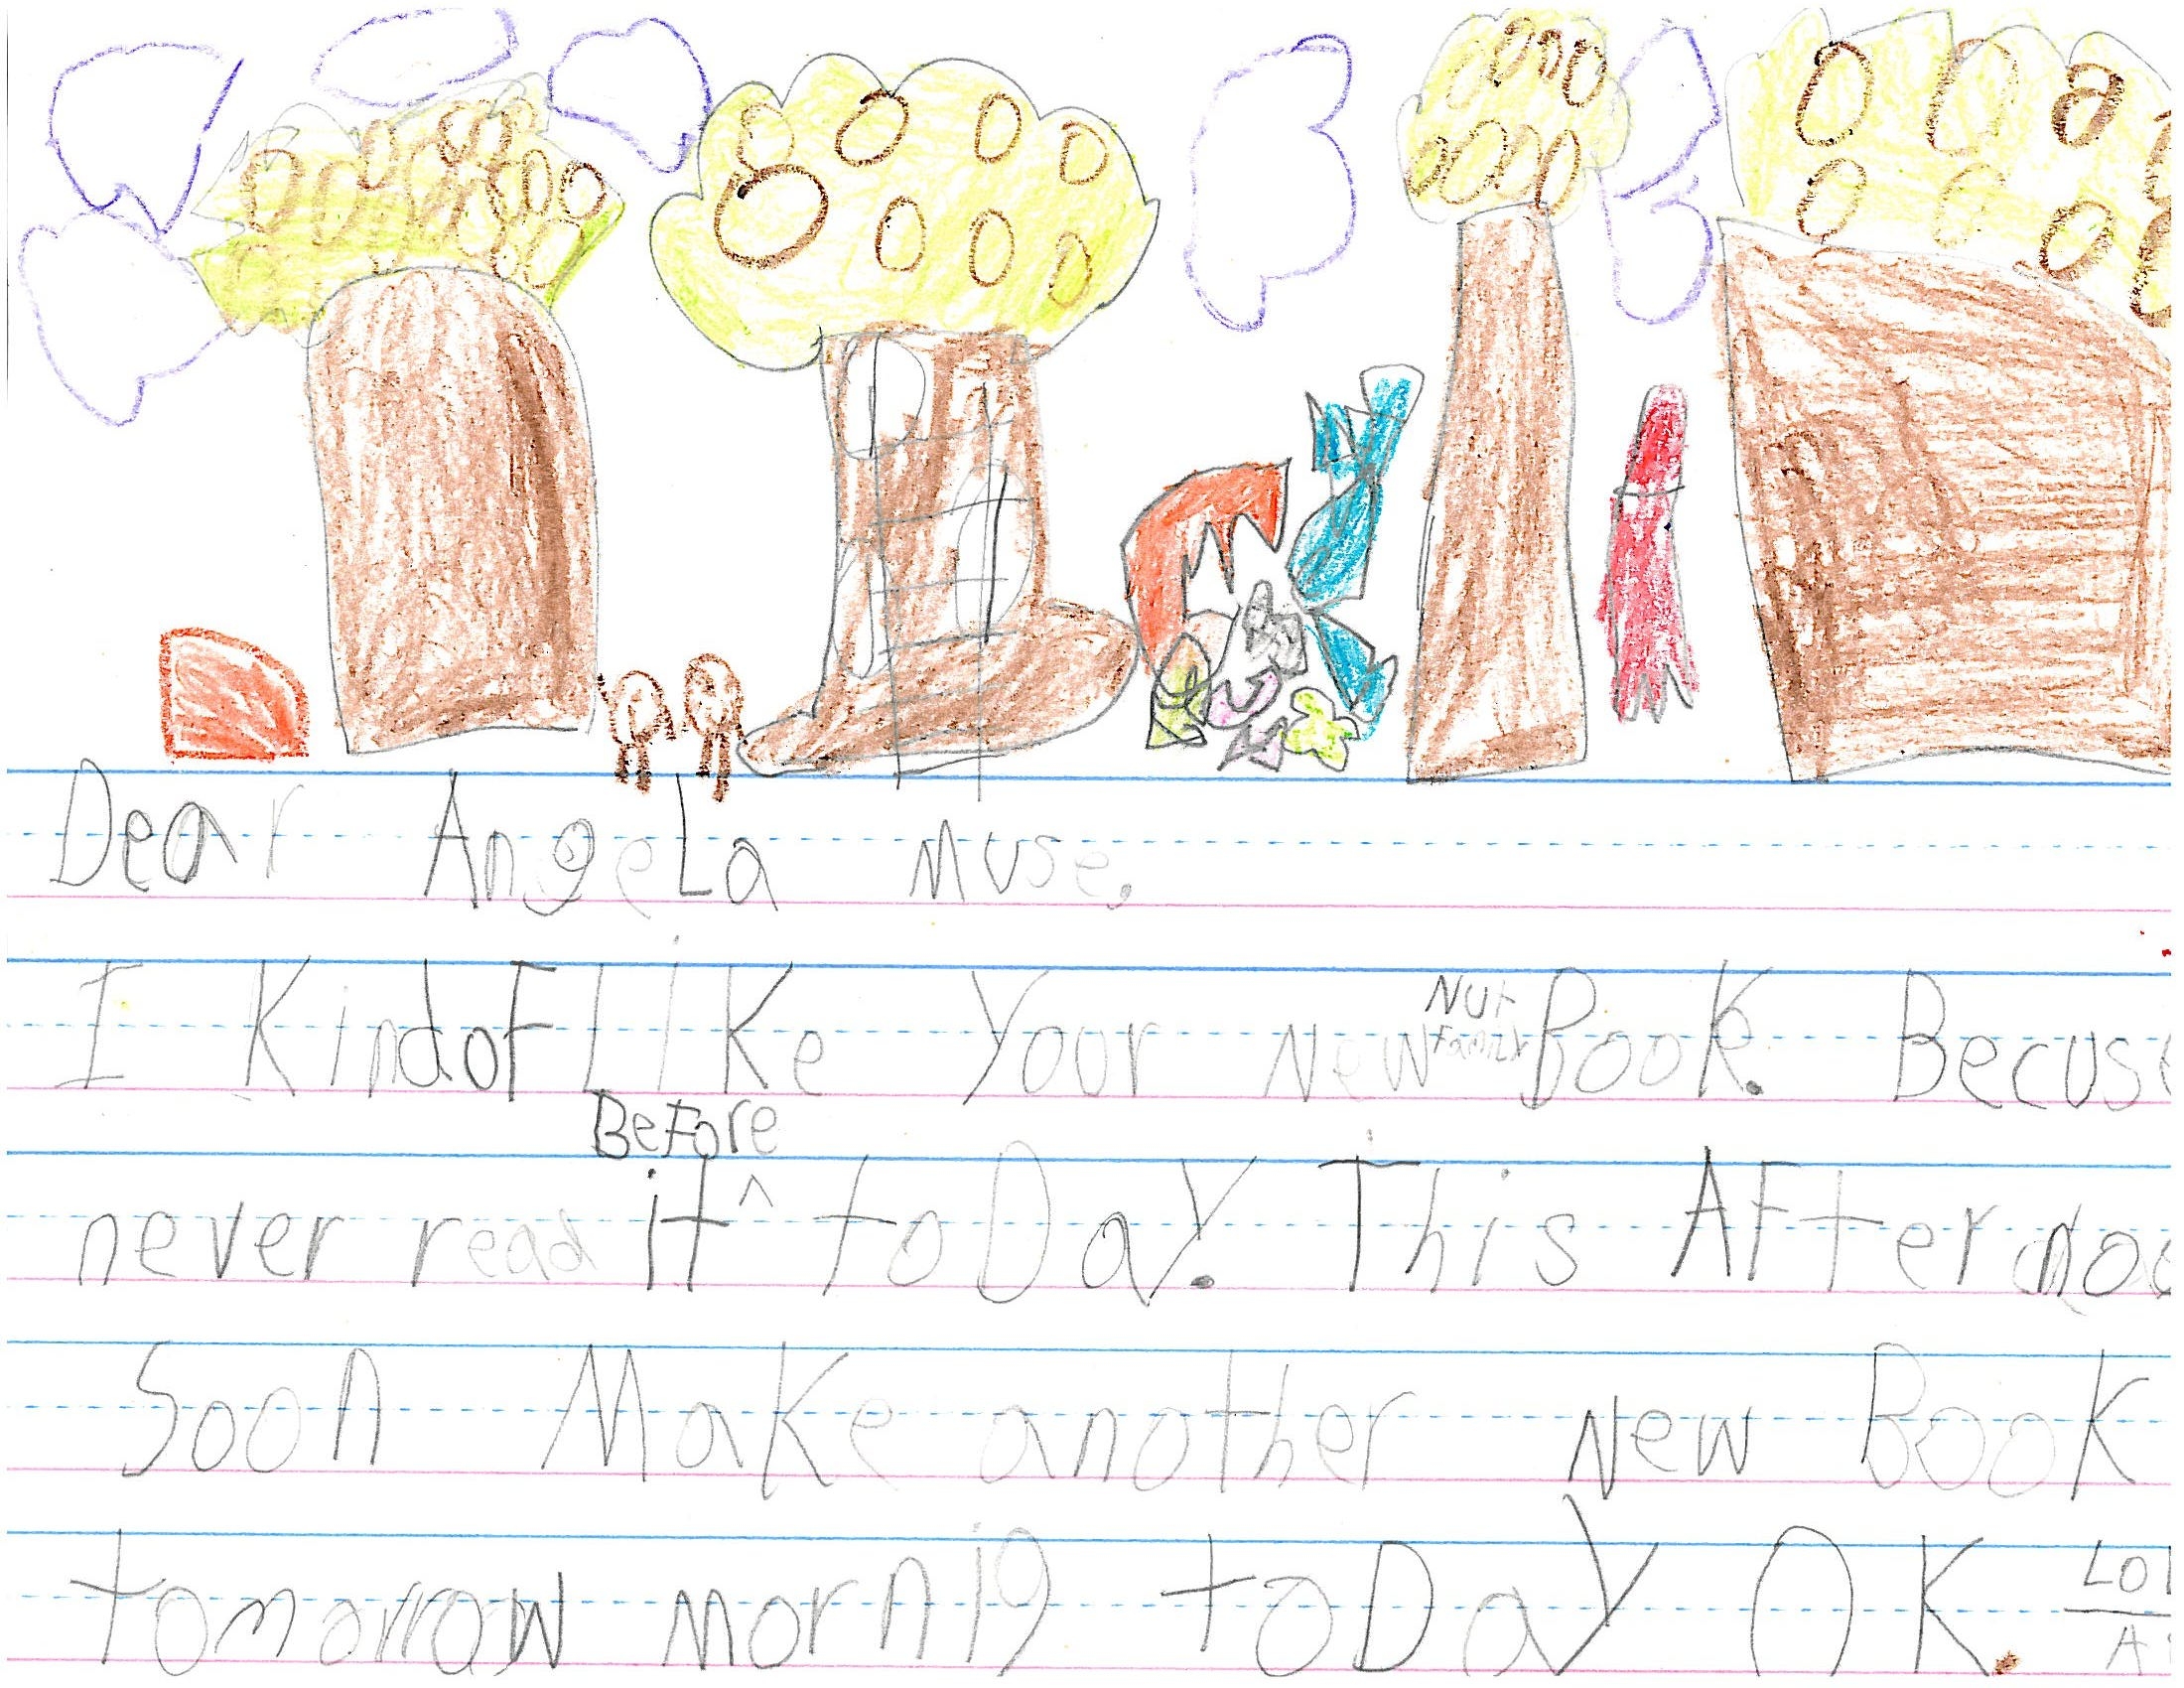 Dear AngeLa muse,
I KindoF Like Your New Nut Family Book. Becuse
never read it Before toDay. This AFterno
Soon Make another New Book
tomorrow mornig toDay OK.